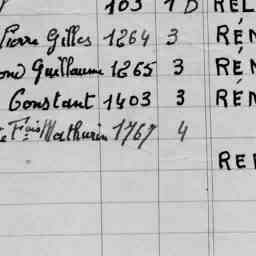 103 1 D REL
Pierre Gilles 1264 3 RÉN
Guillaume 1265 3 RÉN
Constant 1403 3 RÉN
Fois Mathurin 1767 4
REP